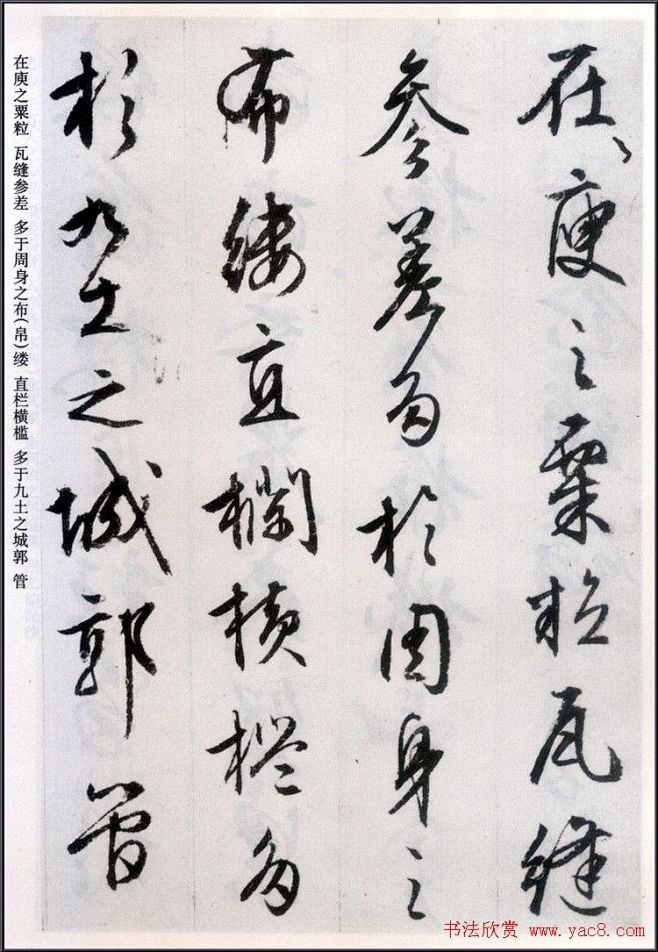 在庾之粟粒瓦縫
參差多於周身之
布縷直欄橫檻多
於九土之城郭管
在庾之粟粒 瓦缝参差 多于周身之布(帛)缕 直栏横槛 多于九土之城郭 管
书法欣赏 www.yac8.com